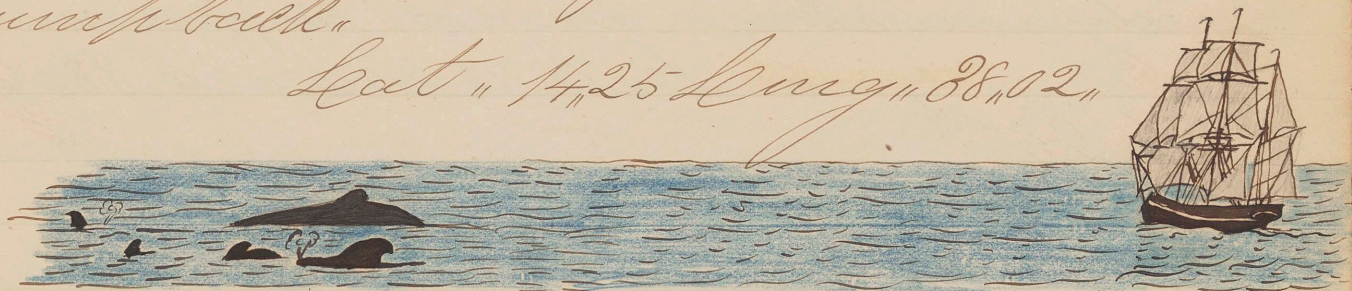 umpback"
Lat " 14,,25 Long,, 38,,02,,